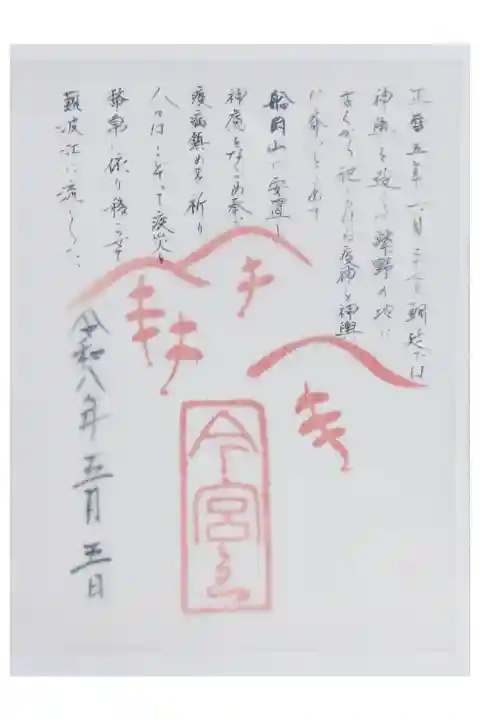 正暦五年六月二十七日朝廷では
神輿を造り紫野の地に
古くから祀られる疫神を神輿
に齋いこめて
船岡山に安置し
神慮をなぐさめ奉り
疫病鎮めを祈り
人々はこぞって疫災を
幣帛に依り移らせて
難波江に流しました
令和八年五月五日
今宮